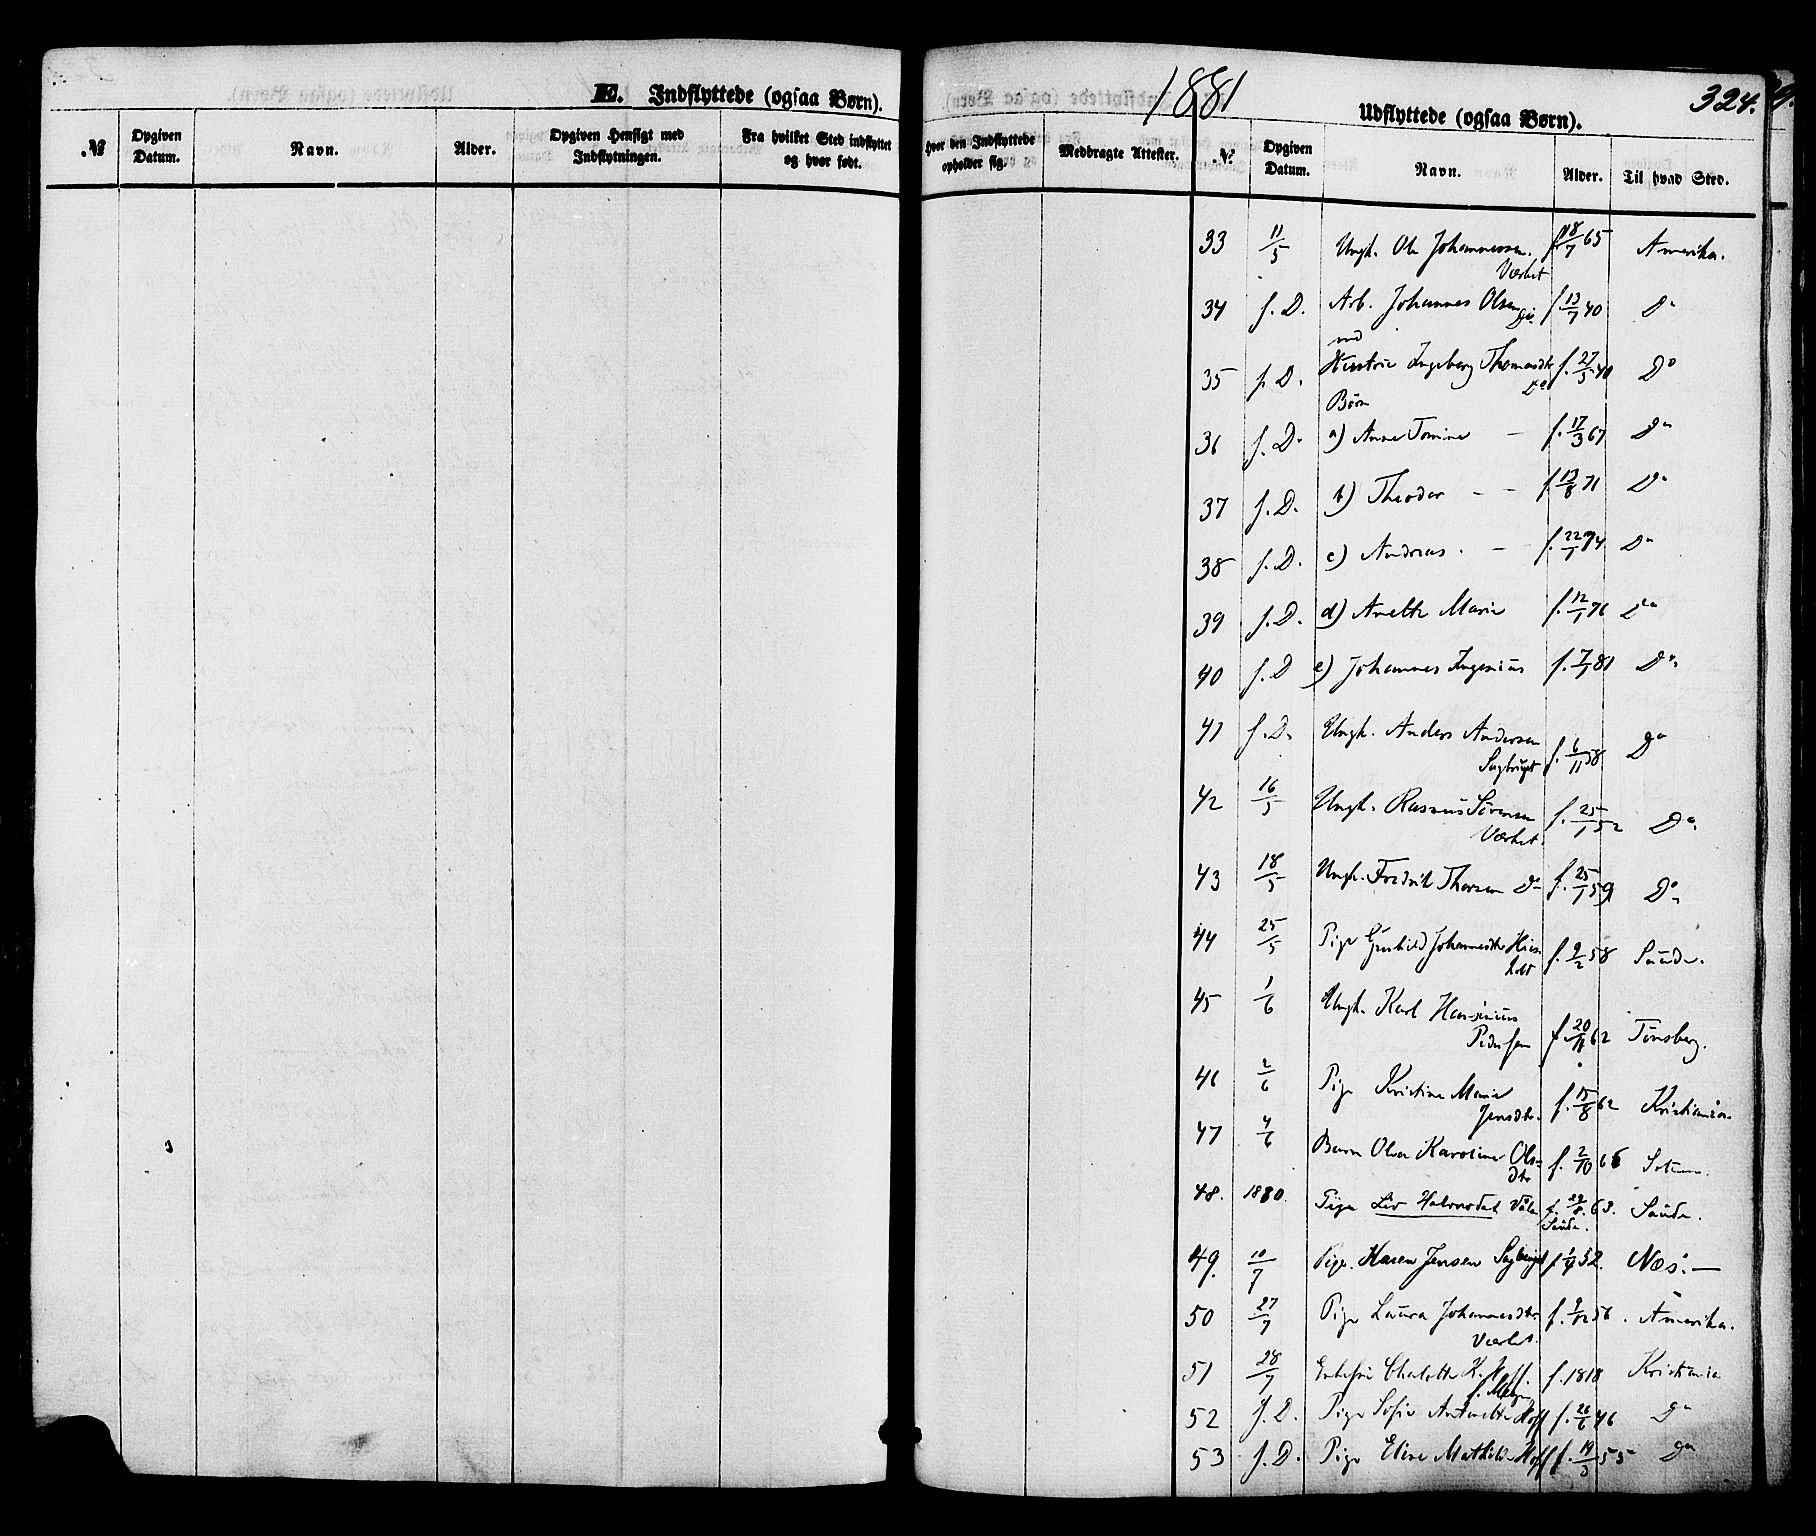 E. Indflyttede (ogsaa Børn).
№ Opgiven Datum. Navn. Alder. Opgiven Hensigt med Indflytningen. Fra hvilket Sted indflyttet og hvor født.
1881
324.
Udflyttede (ogsaa Børn).
Hvor den Indflyttede opholder sig. Medbragte Attester. № Opgiven Datum. Navn. Alder. Til hvad Sted.
33 11/5 Ungk. Ole Johannessen. f. 18/7 65 Amerika.
Værket
34 s. D. Arb. Johannes Olsen Do. f. 13/7 40 Do
med
35 s. D. Hustrie Ingeborg Thomasdtr f. 27/5 40 Do
Do
Børn
36 s. D. a) Anne Tomine — f. 17/3 67 Do
37 s. D. b) Theodor - - f. 13/8 71 Do
38 s. D. c) Andreas. - f. 22/1 74 Do
39 s. D. d) Anette Marie f. 12/1 76 Do
40 s. D e) Johannes Ingenius f. 7/1 81 Do
41 s. D. Ungk. Anders Andersen
Sagbruget f. 6/11 58 Do
42 16/5 Ungk. Rasmus Sörensen f. 25/1 52 Do
Værket.
43 18/5 Ungk. Fredrik Thorsen Do f. 25/1 59 Do
44 25/5 Pige Gunhild Johannesdtr f. 9/2 58 Saude.
45 1/6 Ungk. Karl
Pedersen f. 20/11 62 Tönsberg.
46 2/6 Pige Kristine Marie
Jensdtr. f. 15/8 62 Kristiania.
47 4/6 Barn Olea Karoline Ols=
dtr f. 2/10 66
48. 1880. Pige Liv Halvorsdat f. 29/8 63. Saude.
Saude.
49. 10/7 Pige. Karen Jensen Sagbruget f. 52. Næs. —
50 27/7 Pige Laura Johannesdtr f. 9/12 56. Amerika.
Værket.
51 28/7 Enkefrü Charlotte K. Hoff. f. 1818 Kristiania
52 s. D. Pige Sofie Antonette Hoff f. 26/6 46 Do
53 s. D. Pige Elise Mathilde Hoff f. 19/3 55 Do